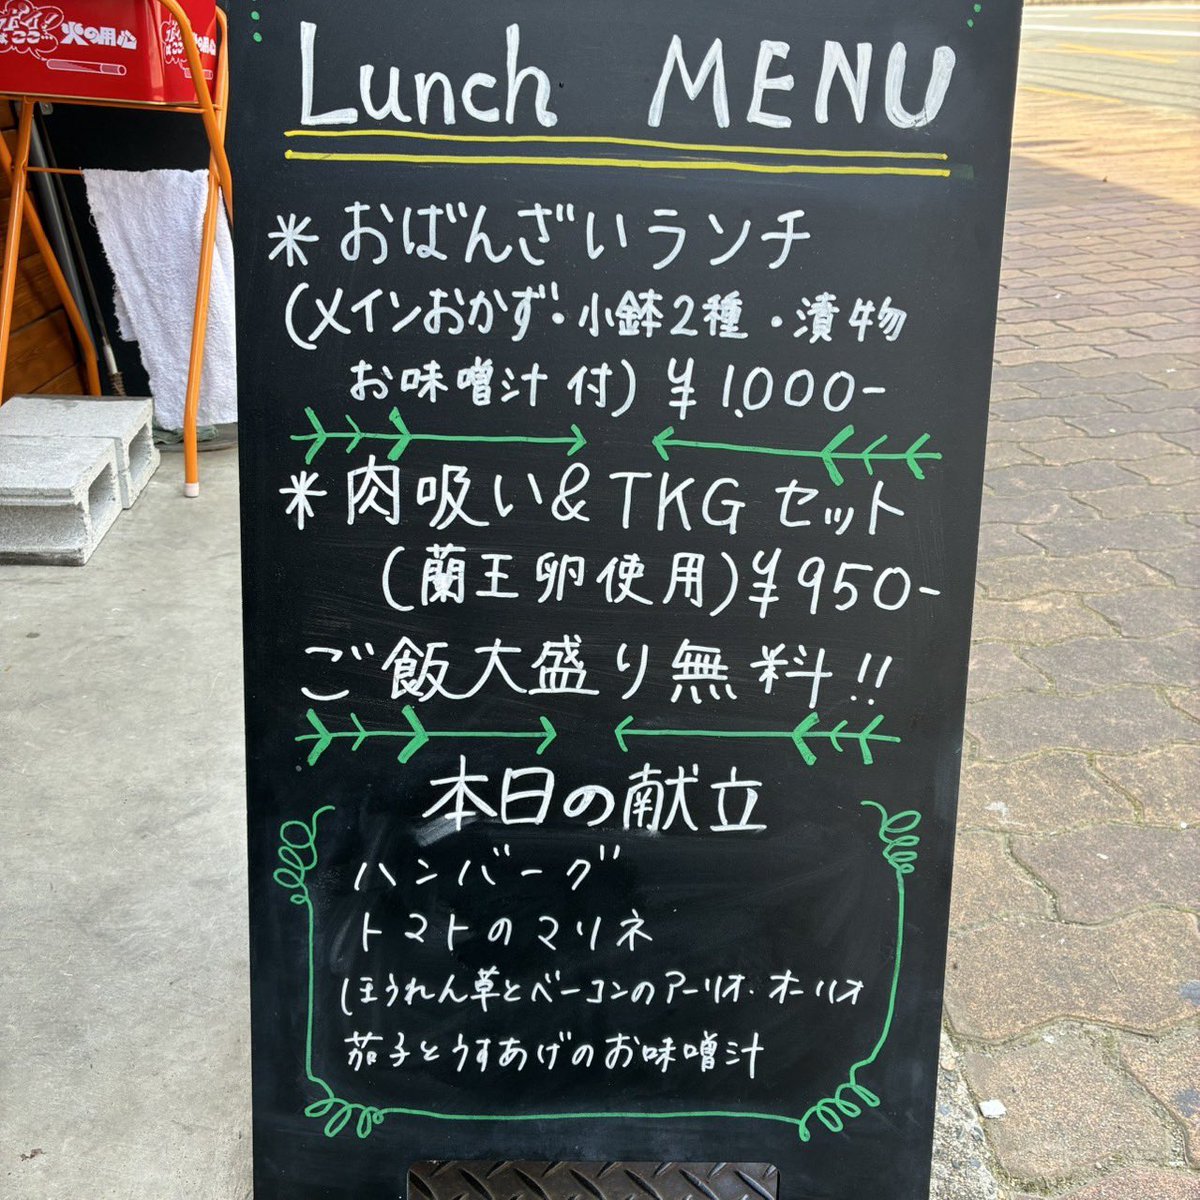 火の用心
Lunch MENU
*おばんざいランチ
(メインおかず・小鉢2種・漬物
お味噌汁付) ¥1,000-
*肉吸い&TKGセット
(蘭王卵使用)¥950-
ご飯大盛り無料!!
本日の献立
ハンバーグ
トマトのマリネ
ほうれん草とベーコンのアーリオ・オーリオ
茄子とうすあげのお味噌汁